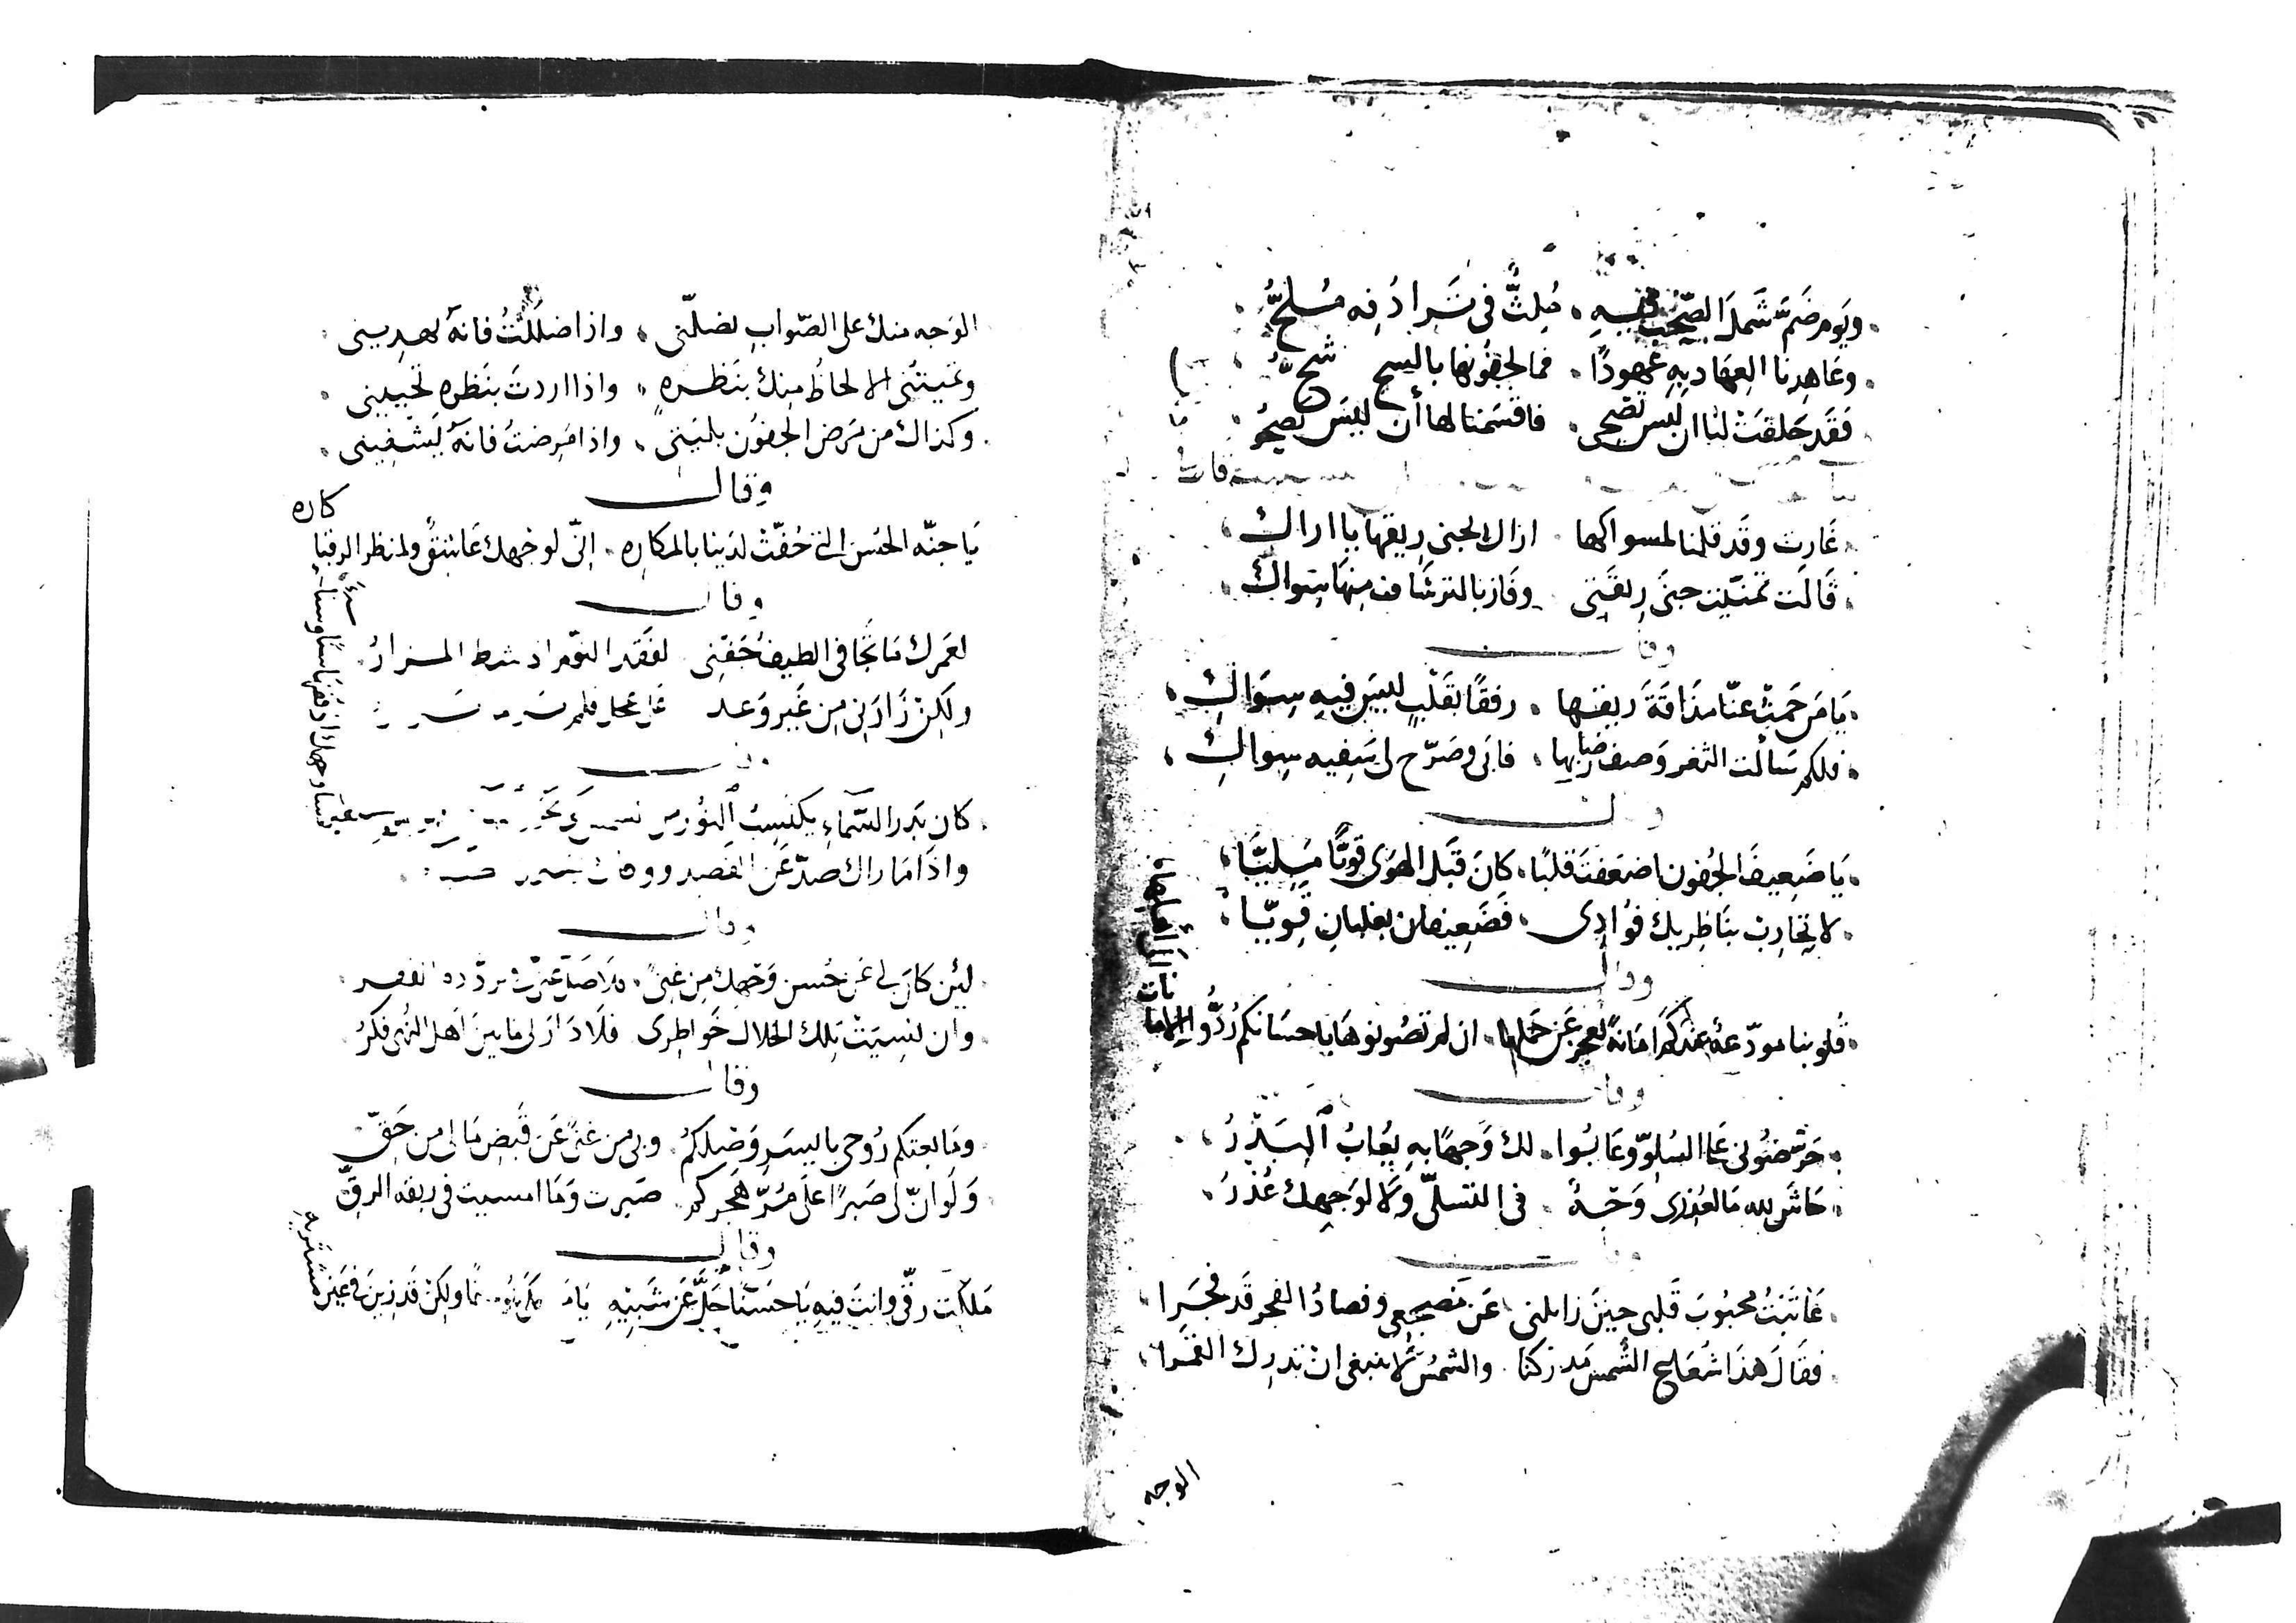 ويَوم ضَمَّ شَملَ الصّحب فيهِ ۰ مُلِثٌّ في تَرادُفه مُلحُّ
وعَاهدنا العِهَاد بِهِ عُهودًا ۰ فما لجفُونها بالسح شحُّ
فَقَد حَلفَتْ لنا ان ليس تضحى ۰ فاقسَمنا لها أن ليسَ نصحُو
غَارت وقَد قلنا لمسواكها اراك تجنى ريقها يا اراك
قَالَت تمنّيت جنَى ريقَتى وفَاز بالترشاف منها سِواك
وقال
يَا مَن حَمَتْ عنّا مذَاقَةَ ريقها ۰ رفقًا بقَلْبٍ ليسَ فيهِ سِوَاكِ
فلكم سَألت الثغر وَصف رضابها ۰ فابَى وصَرّح لى سَفيه سِواكِ
وقال
يَا ضَعِيفَ الجُفون اضعَفتَ قلبًا ۰ كَانَ قَبلَ الهَوَى قَويًّا مَليًّا
لا تحَارِب بنَاظِريك فؤادى ۰ فَضَعِيفان يغلبانِ قَويّا
وقال
قُلوبنا مودَعة عندكم امَانَة نعجز عَن حَملها ۰ ان لم تصُونوهَا باحسَانكم رُدُّوا الامانات الى أهلها
وقال
حَرّضُونى عَلى السُلوّ وعَابُوا ۰ لك وَجهًا بهِ يُعابُ البَدْرُ
حَاشَ لله مَا لعُذرى وَجهٌ ۰ فى التسلّى ولَا لوَجهِك عُذرُ
عَاتَبتُ محبُوبَ قَلبى حينَ زايلنى عَن مَضجعى وفصادُ الفجر قَد فجَرا
فقَالَ هذَا شُعَاع الشَّمس مَدركنا ۰ والشمسُ لا ينبغى ان تدرك القمَرا
الوجه
الوَجه منك على الصّواب يضلّنى ۰ واذا ضلَلْتُ فانهُ يَهدِينى
وتميتُنى الالحاظ مِنك بنَظرةٍ ۰ واذا اردتَ بنَظره تحيينى
وكذاك من مَرَض الجفوُن بليّتى ۰ واذا مَرِضتُ فانهُ يَشفِينى
وقال
يَا جنّه الحسُن التى حُفّتْ لدَينا بالمكاره ۰ انّى لوَجهك عَاشِقٌ ولمنظر الرقبا كاره
وقال
لعَمرك مَا تجَافى الطيف جَفنِى لفَقد النوّم اذ شط المزارُ
ولكِنْ زَارَنِى مِن غَيروَعد على عجل فلم
كان بَدر السَّماءِ يكتسِبُ النوُر من
واذَا مَا راك صَدّ عَن القصد
وقال
لَئِن كَانَ لى عَن حُسن وَجهك مِن غِنًى
وان نسِيَتْ تِلك الخلالَ خَواطِرى فلَا دَارَ لى مَا بينَ اَهل النُهى فكرُ
وقال
ومَا بعتكم رُوحى بايسَر وَصلكمُ وبى من غنًى عَن قَبض مَالى من حَقّ
وَلَو انّ لى صَبرًا على مُرّ هَجركم صَبرت ومَا امسيت فى ربقه الرقّ
وقال
مَلكْت رقّى وانتَ فيهِ يَا حَسَنًا جَلَّ عَن شَبيهِ